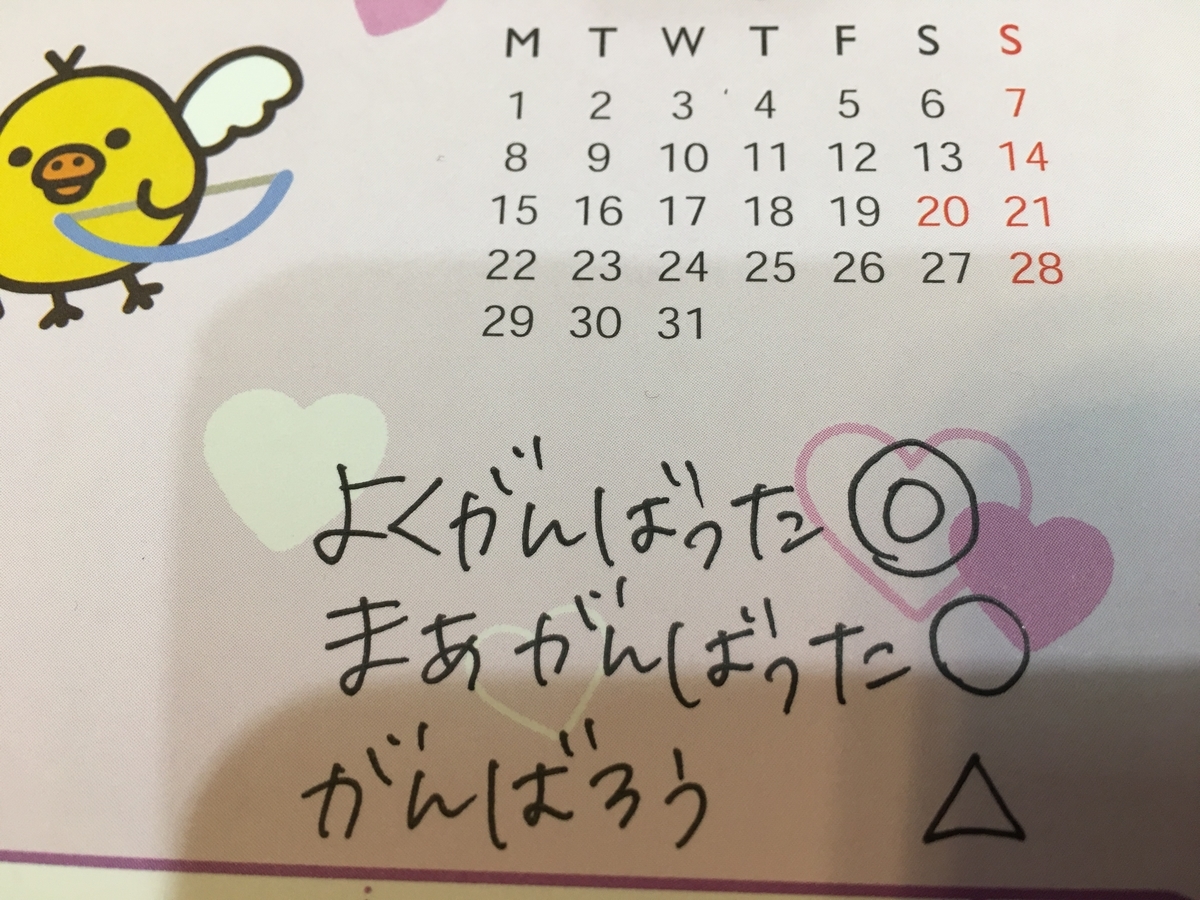 M T W T F S S
1 2 3 4 5 6 7
8 9 10 11 12 13 14
15 16 17 18 19 20 21
22 23 24 25 26 27 28
29 30 31
よくがんばった ◎
まあがんばった ○
がんばろう △